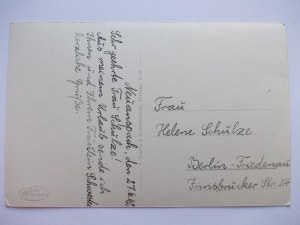 Neuanspach, den 27.4.42
Sehr geehrte Frau Schulze!
Aus meinem Urlaub sende ich
Ihnen und Ihrem Fräulein Schwester
herzliche Grüße.
Frau
Helene Schulze
Berlin-Friedenau
Innsbrücker Str. 24